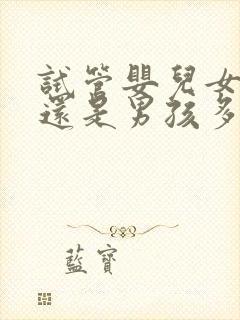 試管嬰兒女
還是男孩多
藍寶